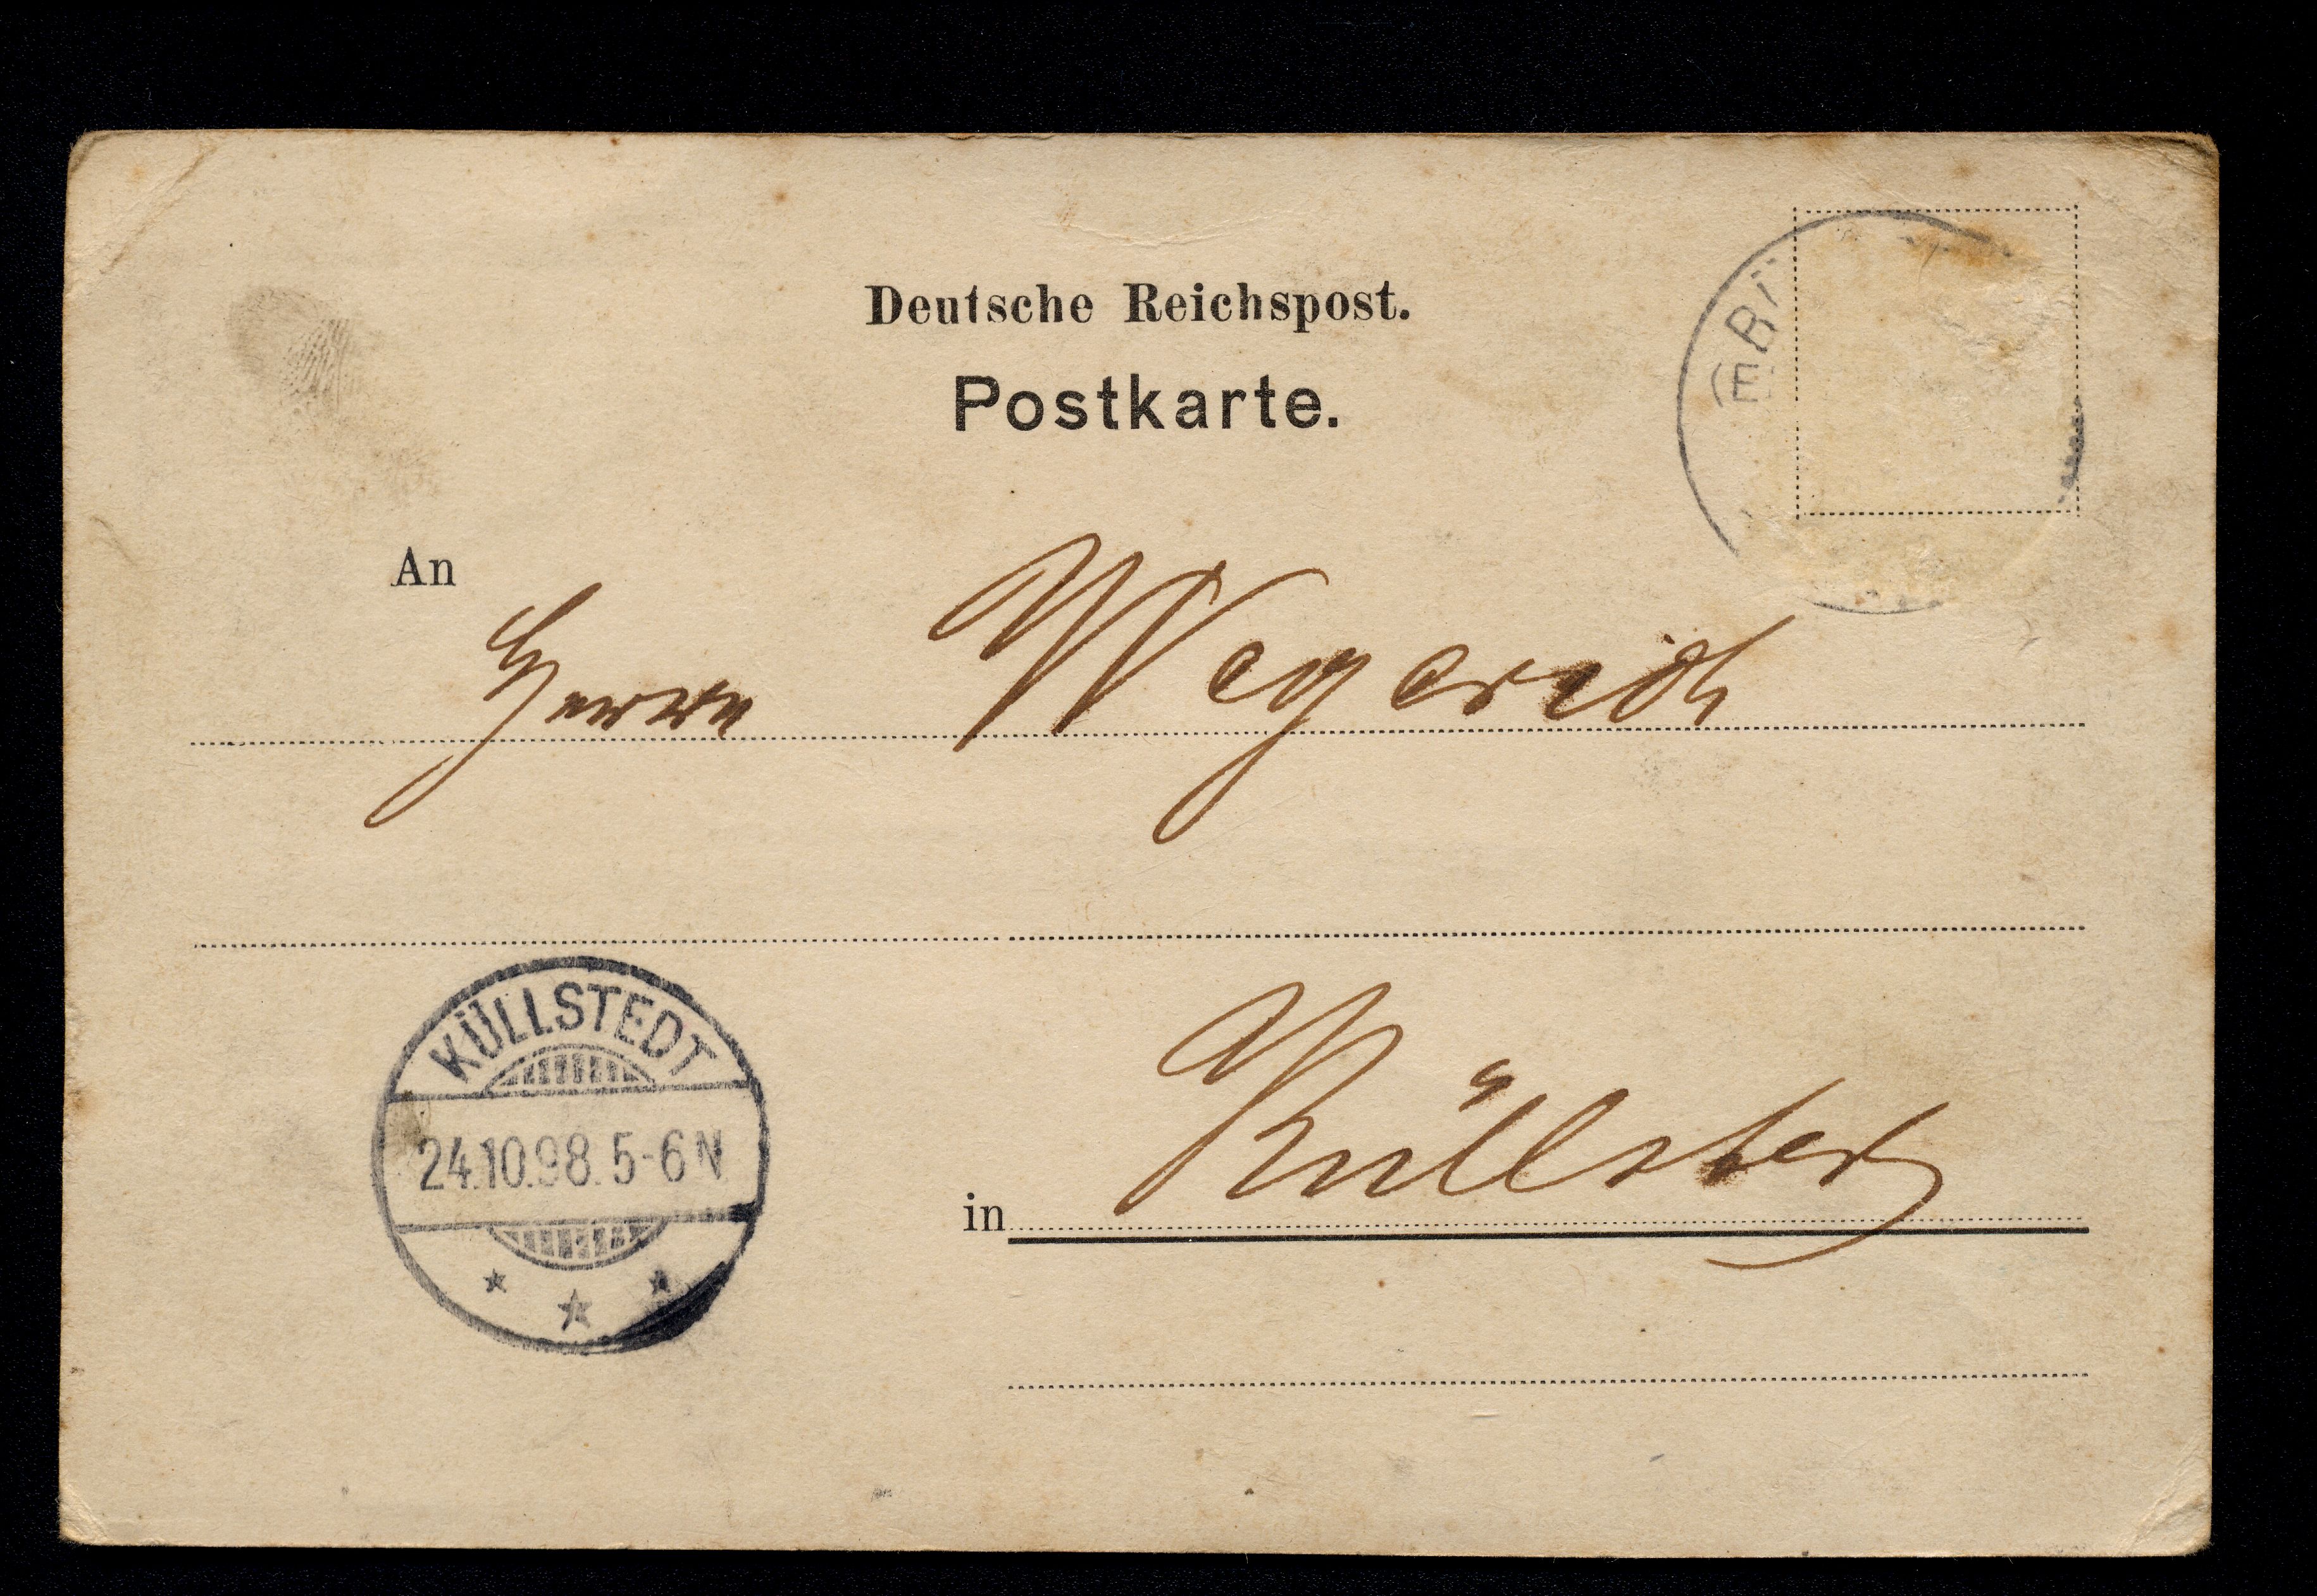 Deutsche Reichspost.
Postkarte.
An
Herrn Wegerich
KÜLLSTEDT
24.10.98. 5-6 N
in Küllstedt